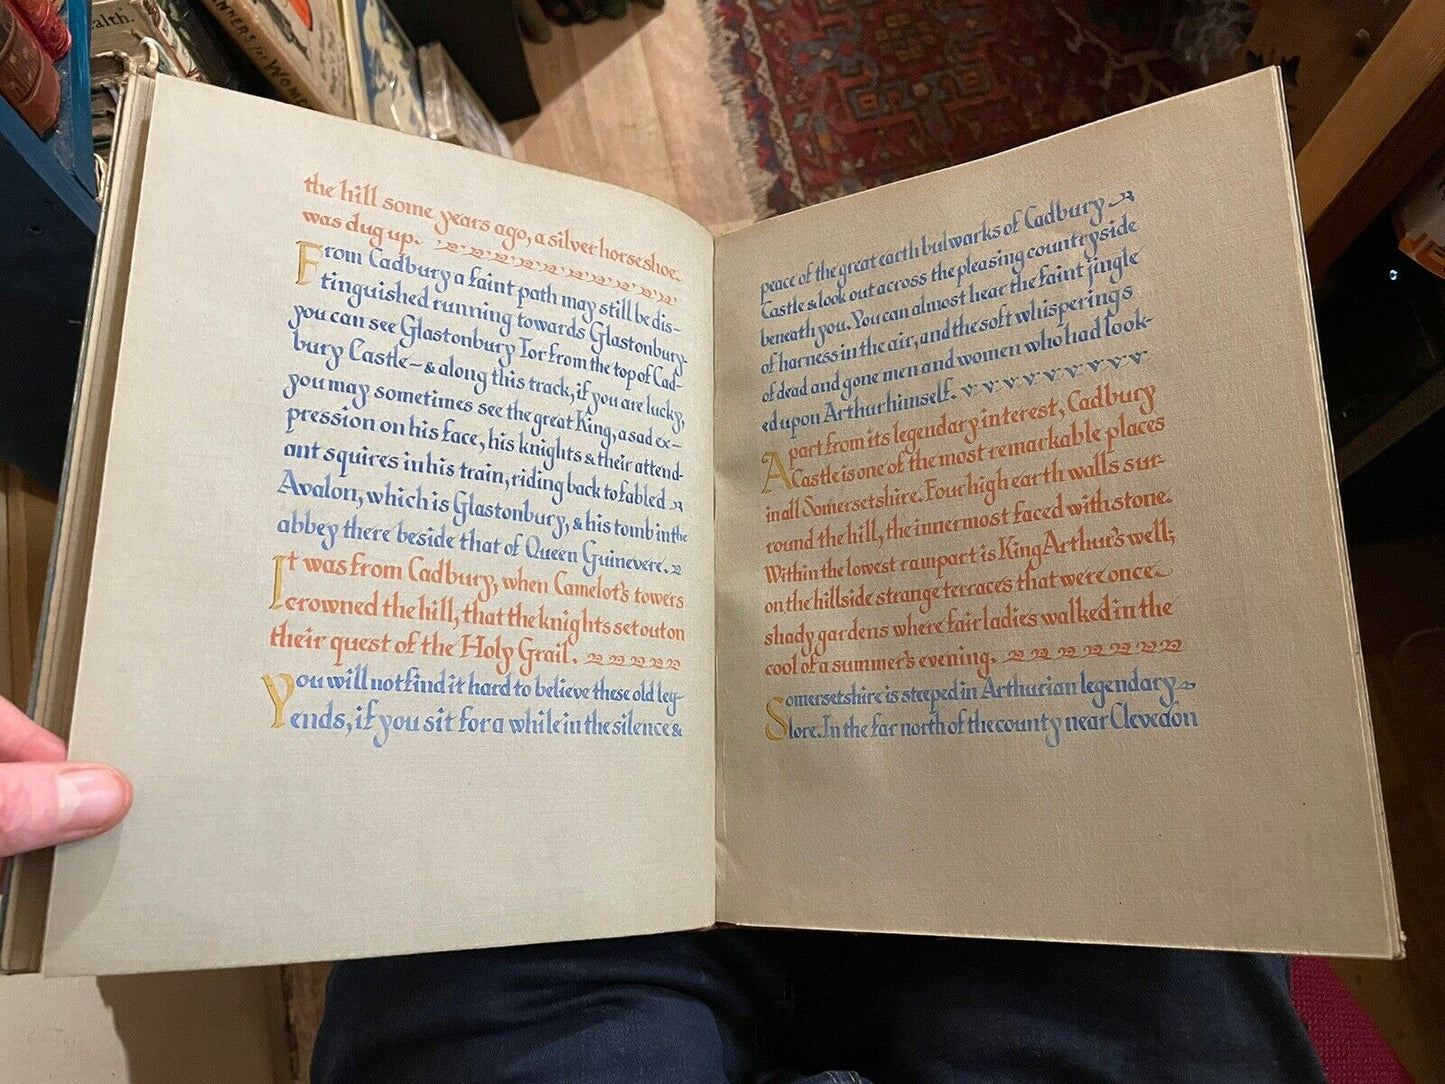 ealth.
the hill some years ago, a silver horseshoe
was dug up.
From Cadbury a faint path may still be dis-
tinguished running towards Glastonbury-
you can see Glastonbury Tor from the top of Cad-
bury Castle - & along this track, if you are lucky,
you may sometimes see the great King, a sad ex-
pression on his face, his knights & their attend-
ant squires in his train, riding back to fabled
Avalon, which is Glastonbury, & his tomb in the
abbey there beside that of Queen Guinevere.
It was from Cadbury, when Camelot's towers
crowned the hill, that the knights set out on
their quest of the Holy Grail.
You will not find it hard to believe these old leg-
ends, if you sit for a while in the silence &
peace of the great earth bulwarks of Cadbury
Castle & look out across the pleasing countryside
beneath you. You can almost hear the faint jingle
of harness in the air, and the soft whisperings
of dead and gone men and women who had look-
ed upon Arthur himself.
Apart from its legendary interest, Cadbury
Castle is one of the most remarkable places
in all Somersetshire. Four high earth walls sur-
round the hill, the innermost faced with stone.
Within the lowest rampart is King Arthur's well;
on the hillside strange terraces that were once
shady gardens where fair ladies walked in the
cool of a summer's evening.
Somersetshire is steeped in Arthurian legendary
lore. In the far north of the county near Clevedon